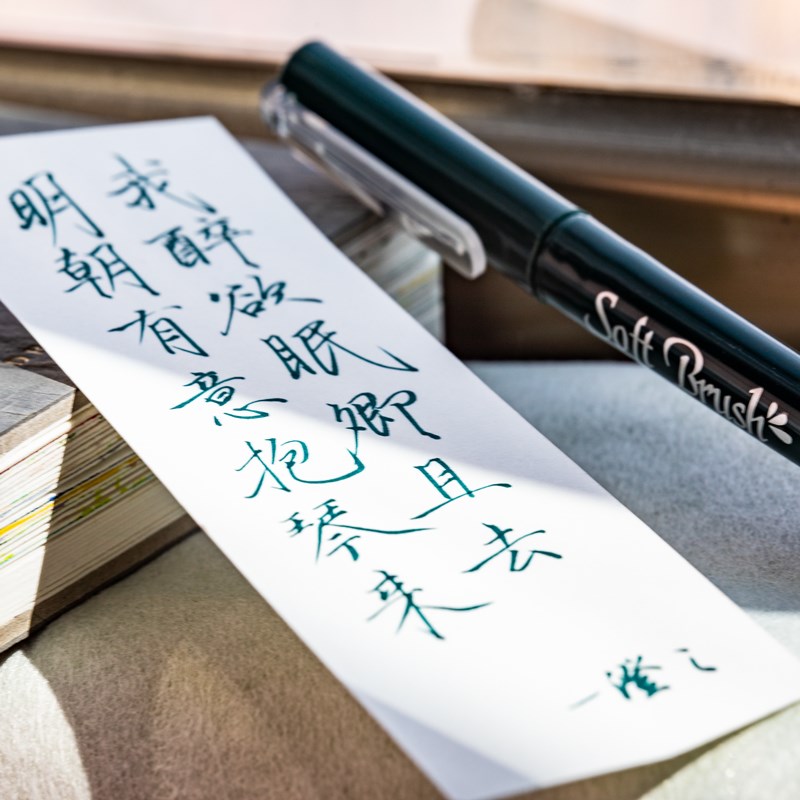 我醉欲眠卿且去
明朝有意抱琴来
一澄
Soft Brush